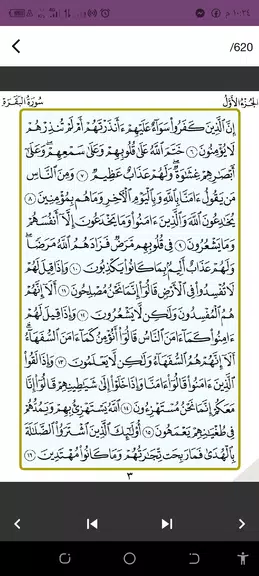 ١٠:٢٤
/620
سُورَةُ البَقَرَةِ
الجُزءُ الأَوَّلُ
إِنَّ ٱلَّذِينَ كَفَرُواْ سَوَآءٌ عَلَيۡهِمۡ ءَأَنذَرۡتَهُمۡ أَمۡ لَمۡ تُنذِرۡهُمۡ
لَا يُؤۡمِنُونَ ٦ خَتَمَ ٱللَّهُ عَلَىٰ قُلُوبِهِمۡ وَعَلَىٰ سَمۡعِهِمۡۖ وَعَلَىٰٓ
أَبۡصَٰرِهِمۡ غِشَٰوَةٞۖ وَلَهُمۡ عَذَابٌ عَظِيمٞ ٧ وَمِنَ ٱلنَّاسِ
مَن يَقُولُ ءَامَنَّا بِٱللَّهِ وَبِٱلۡيَوۡمِ ٱلۡأٓخِرِ وَمَا هُم بِمُؤۡمِنِينَ ٨
يُخَٰدِعُونَ ٱللَّهَ وَٱلَّذِينَ ءَامَنُواْ وَمَا يَخۡدَعُونَ إِلَّآ أَنفُسَهُمۡ
وَمَا يَشۡعُرُونَ ٩ فِي قُلُوبِهِم مَّرَضٞ فَزَادَهُمُ ٱللَّهُ مَرَضٗاۖ
وَلَهُمۡ عَذَابٌ أَلِيمُۢ بِمَا كَانُواْ يَكۡذِبُونَ ١٠ وَإِذَا قِيلَ لَهُمۡ
لَا تُفۡسِدُواْ فِي ٱلۡأَرۡضِ قَالُوٓاْ إِنَّمَا نَحۡنُ مُصۡلِحُونَ ١١ أَلَآ إِنَّهُمۡ
هُمُ ٱلۡمُفۡسِدُونَ وَلَٰكِن لَّا يَشۡعُرُونَ ١٢ وَإِذَا قِيلَ لَهُمۡ
ءَامِنُواْ كَمَآ ءَامَنَ ٱلنَّاسُ قَالُوٓاْ أَنُؤۡمِنُ كَمَآ ءَامَنَ ٱلسُّفَهَآءُۗ
أَلَآ إِنَّهُمۡ هُمُ ٱلسُّفَهَآءُ وَلَٰكِن لَّا يَعۡلَمُونَ ١٣ وَإِذَا لَقُواْ
ٱلَّذِينَ ءَامَنُواْ قَالُوٓاْ ءَامَنَّا وَإِذَا خَلَوۡاْ إِلَىٰ شَيَٰطِينِهِمۡ قَالُوٓاْ إِنَّا
مَعَكُمۡ إِنَّمَا نَحۡنُ مُسۡتَهۡزِءُونَ ١٤ ٱللَّهُ يَسۡتَهۡزِئُ بِهِمۡ وَيَمُدُّهُمۡ
فِي طُغۡيَٰنِهِمۡ يَعۡمَهُونَ ١٥ أُوْلَٰٓئِكَ ٱلَّذِينَ ٱشۡتَرَوُاْ ٱلضَّلَٰلَةَ
بِٱلۡهُدَىٰ فَمَا رَبِحَت تِّجَٰرَتُهُمۡ وَمَا كَانُواْ مُهۡتَدِينَ ١٦
٣